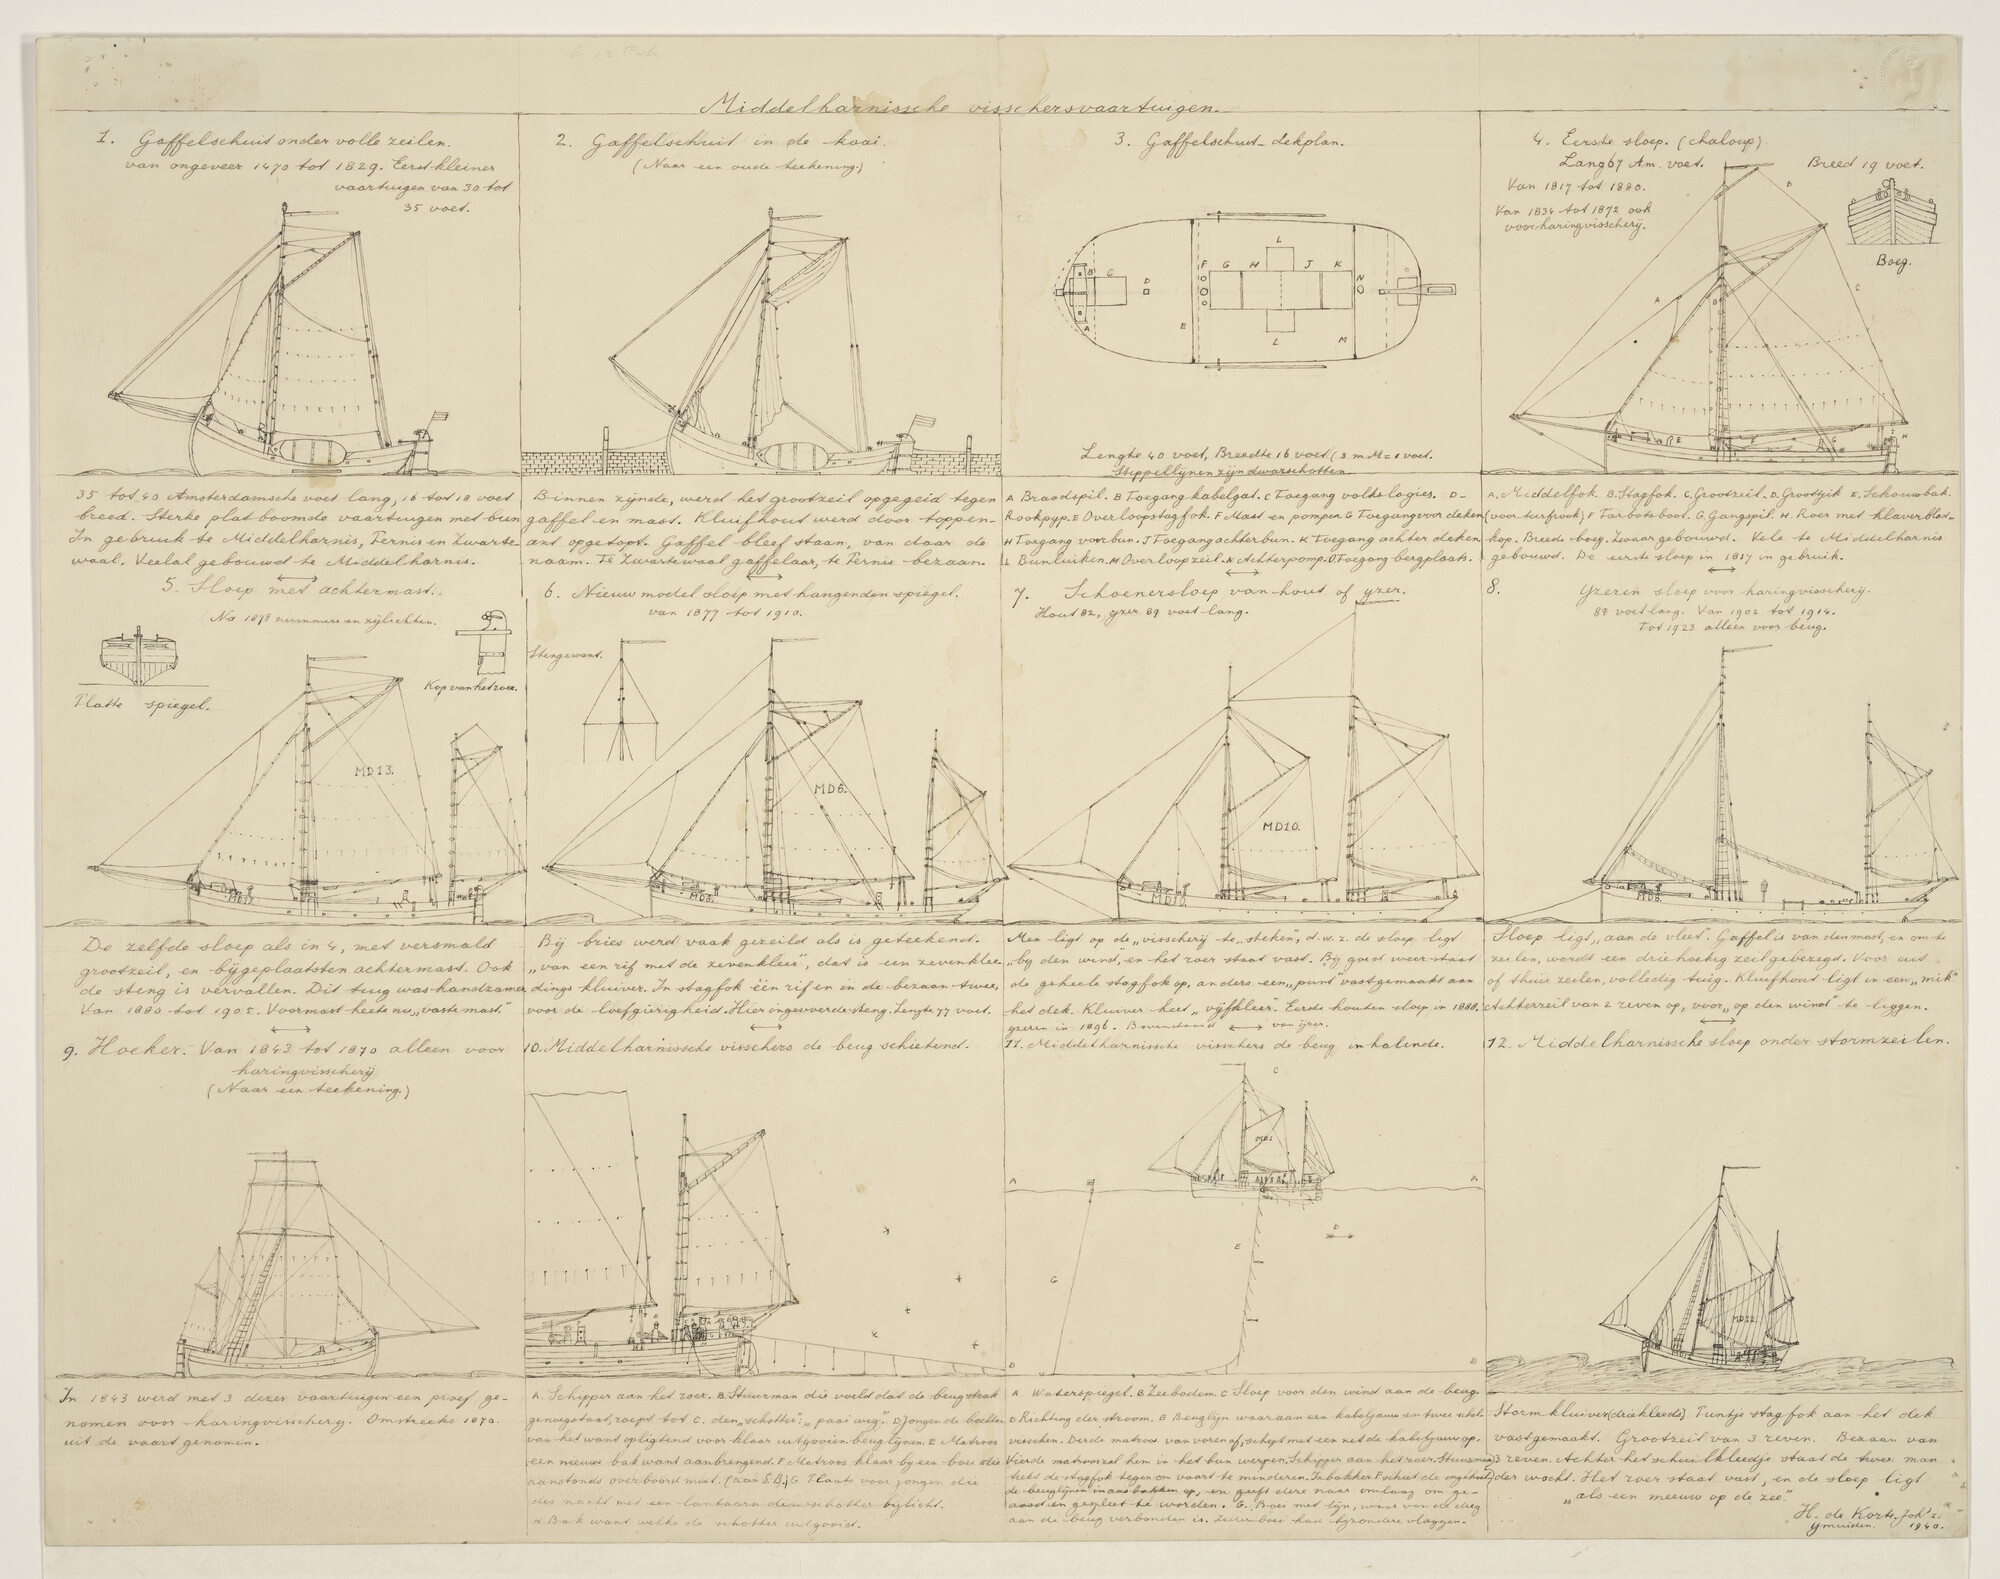 Middelharnissche visschersvaartuigen.
1. Gaffelschuit onder volle zeilen.
van ongeveer 1470 tot 1829. Eerst kleiner
vaartuigen van 30 tot
35 voet.
35 tot 40 Amsterdamsche voet lang, 16 tot 18 voet
breed. Sterke plat boomde vaartuigen met bun
In gebruik te Middelharnis, Pernis en Zwarte-
waal. Veelal gebouwd te Middelharnis.
2. Gaffelschuit in de kaai.
(Naar een oude teekening.)
Binnen zijnde, werd het grootzeil opgegeid tegen
gaffel en mast. Kluifhout werd door toppen-
ant opgetopt. Gaffel bleef staan, van daar de
naam. Te Zwartewaal gaffelaar, te Pernis bezaan.
3. Gaffelschuit-dekplan.
F G H L J K
A B C D E N M O
Lengte 40 voet, Breedte 16 voet (3 m.M = 1 voet.
Stippellijnen zijn dwarsschotten
A Braadspil. B Toegang kabelgat. C Toegang volks logies. D-
Rookpyp. E Overloopstagfok. F Mast en pompen G Toegang voor deken
H Toegang voorbun. J Toegang achterbun. K Toegang achter deken
L Bunluiken. M Overloopzeil. N Achterpomp. O Toegang bergplaats.
4. Eerste sloep. (chaloup)
Lang 67 Am. voet. Breed 19 voet.
Van 1817 tot 1880.
Van 1834 tot 1872 ook
voor haringvisscherij.
Boeg.
A. Middelfok. B. Stagfok. C. Grootzeil. D. Grootgik E. Schouwbak.
(voor turfrook) F Tarbotsboot. G. Gangspil. H. Roer met klaverblad-
kop. Breede boeg. Zwaar gebouwd. Vele te Middelharnis
gebouwd. De eerste sloep in 1817 in gebruik.
5. Sloep met achtermast.
Na 1878 nummers en zijlichten.
Platte spiegel.
Kop van het roer.
MD13.
De zelfde sloep als in 4, met versmald
grootzeil, en bijgeplaatsten achtermast. Ook
de steng is vervallen. Dit tuig was handzamer
Van 1880 tot 1905. Voormast heete nu „vaste mast."
6. Nieuw model sloep met hangenden spiegel.
van 1877 tot 1910.
Stengewant.
MD6.
MD6.
Bij bries werd vaak gezeild als is geteekend.
„van een rif met de zevenkleer", dat is een zevenklee
dings kluiver. In stagfok één rif en in de bezaan twee,
voor de loefgierigheid. Hier ingevoerde steng. Lengte 77 voet.
7. Schoenersloep van hout of yzer.
Hout 82, yzer 89 voet lang.
MD10.
MD10
Men ligt op de „visscherij te „steken", d.w.z. de sloep ligt
„by den wind, en het roer staat vast. By goed weer staat
de geheele stagfok op, anders een „punt" vastgemaakt aan
het dek. Kluiver heet „vijfkleer". Eerste houten sloep in 1888.
yzeren in 1896. Bovenstaand van yzer.
8. Yzeren sloep voor haringvisscherij.
89 voet lang. Van 1902 tot 1914.
Tot 1923 alleen voor beug.
Sloep ligt „aan de vleet". Gaffel is van den mast, en om te
zeilen, wordt een driehoekig zeil gebezigd. Voor uit
of thuis zeilen, volledig tuig. Kluifhout ligt in een „mik"
Achterzeil van 2 reven op, voor „op den wind" te liggen.
9. Hoeker. Van 1843 tot 1870 alleen voor
haringvisscherij
(Naar een teekening.)
In 1843 werd met 3 dezer vaartuigen een proef ge-
nomen voor haringvisscherij. Omstreeks 1870.
uit de vaart genomen.
10. Middelharnissche visschers de beug schietend.
A. Schipper aan het roer. B. Stuurman die voeld dat de beug strak
genoeg staat, roept tot C. den „schotter": „paai weg". D Jongen de
van het want opligtend voor klaar uitgooien beuglijnen. E Matroos
een nieuwe bak want aanbrengend. F Matroos klaar by een boei die
aanstonds overboord moet. (aan S.B.) G Plaats voor jongen die
des nachts met een lantaarn den schotter bijlicht.
H Bak want welke de schotter uitgooid.
11. Middelharnissche visschers de beug inhalende.
A C A
D
E
G
B B
A Waterspiegel. B Zeebodem. C Sloep voor den wind aan de beug.
D Richting der stroom. E Beuglyn waaraan een kabeljauw en twee
visschen. Derde matroos van voren af, schept met een net de kabeljauw op.
Vierde matroos zal hem in het bun werpen. Schipper aan het roer. Stuurman
de stagfok tegen om vaart te minderen. Inbakker F schiet de
de beuglijnen in aas bakken op, en geeft deze naar omlaag om ge-
aasd en gespleet te worden. G. Boei met lijn, waar van de dreg
aan de beug verbonden is. Iedere boei had byzondere vlaggen.
12. Middelharnissche sloep onder stormzeilen.
Stormkluiver (driekleeds) Puntje stagfok aan het dek
vastgemaakt. Grootzeil van 3 reven. Bezaan van
3 reven. Achter het schuilkleedje staat de twee man
der wacht. Het roer staat vast, en de sloep ligt
„als een meeuw op de zee."
H. de Korte Jokz.
Ymuiden. 1940.